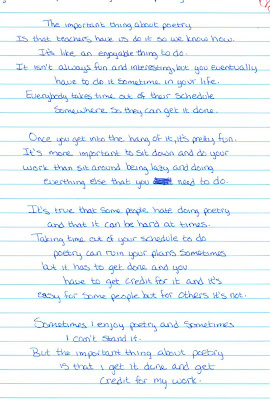 The important thing about poetry
Is that teachers have us do it so we know how.
It's like an enjoyable thing to do.
It isn't always fun and interesting, but you eventually
have to do it sometime in your life.
Everybody takes time out of their schedule
Somewhere so they can get it done.
Once you get into the hang of it, it's pretty fun.
It's more important to sit down and do your
work than sit around being lazy and doing
everthing else that you need to do.
It's true that some people hate doing poetry
and that it can be hard at times.
Taking time out of your schedule to do
poetry can ruin your plans sometimes
but it has to get done and you
have to get credit for it and it's
easy for some people but for others it's not.
Sometimes I enjoy poetry and sometimes
I can't stand it.
But the important thing about poetry
is that I get it done and get
credit for my work.